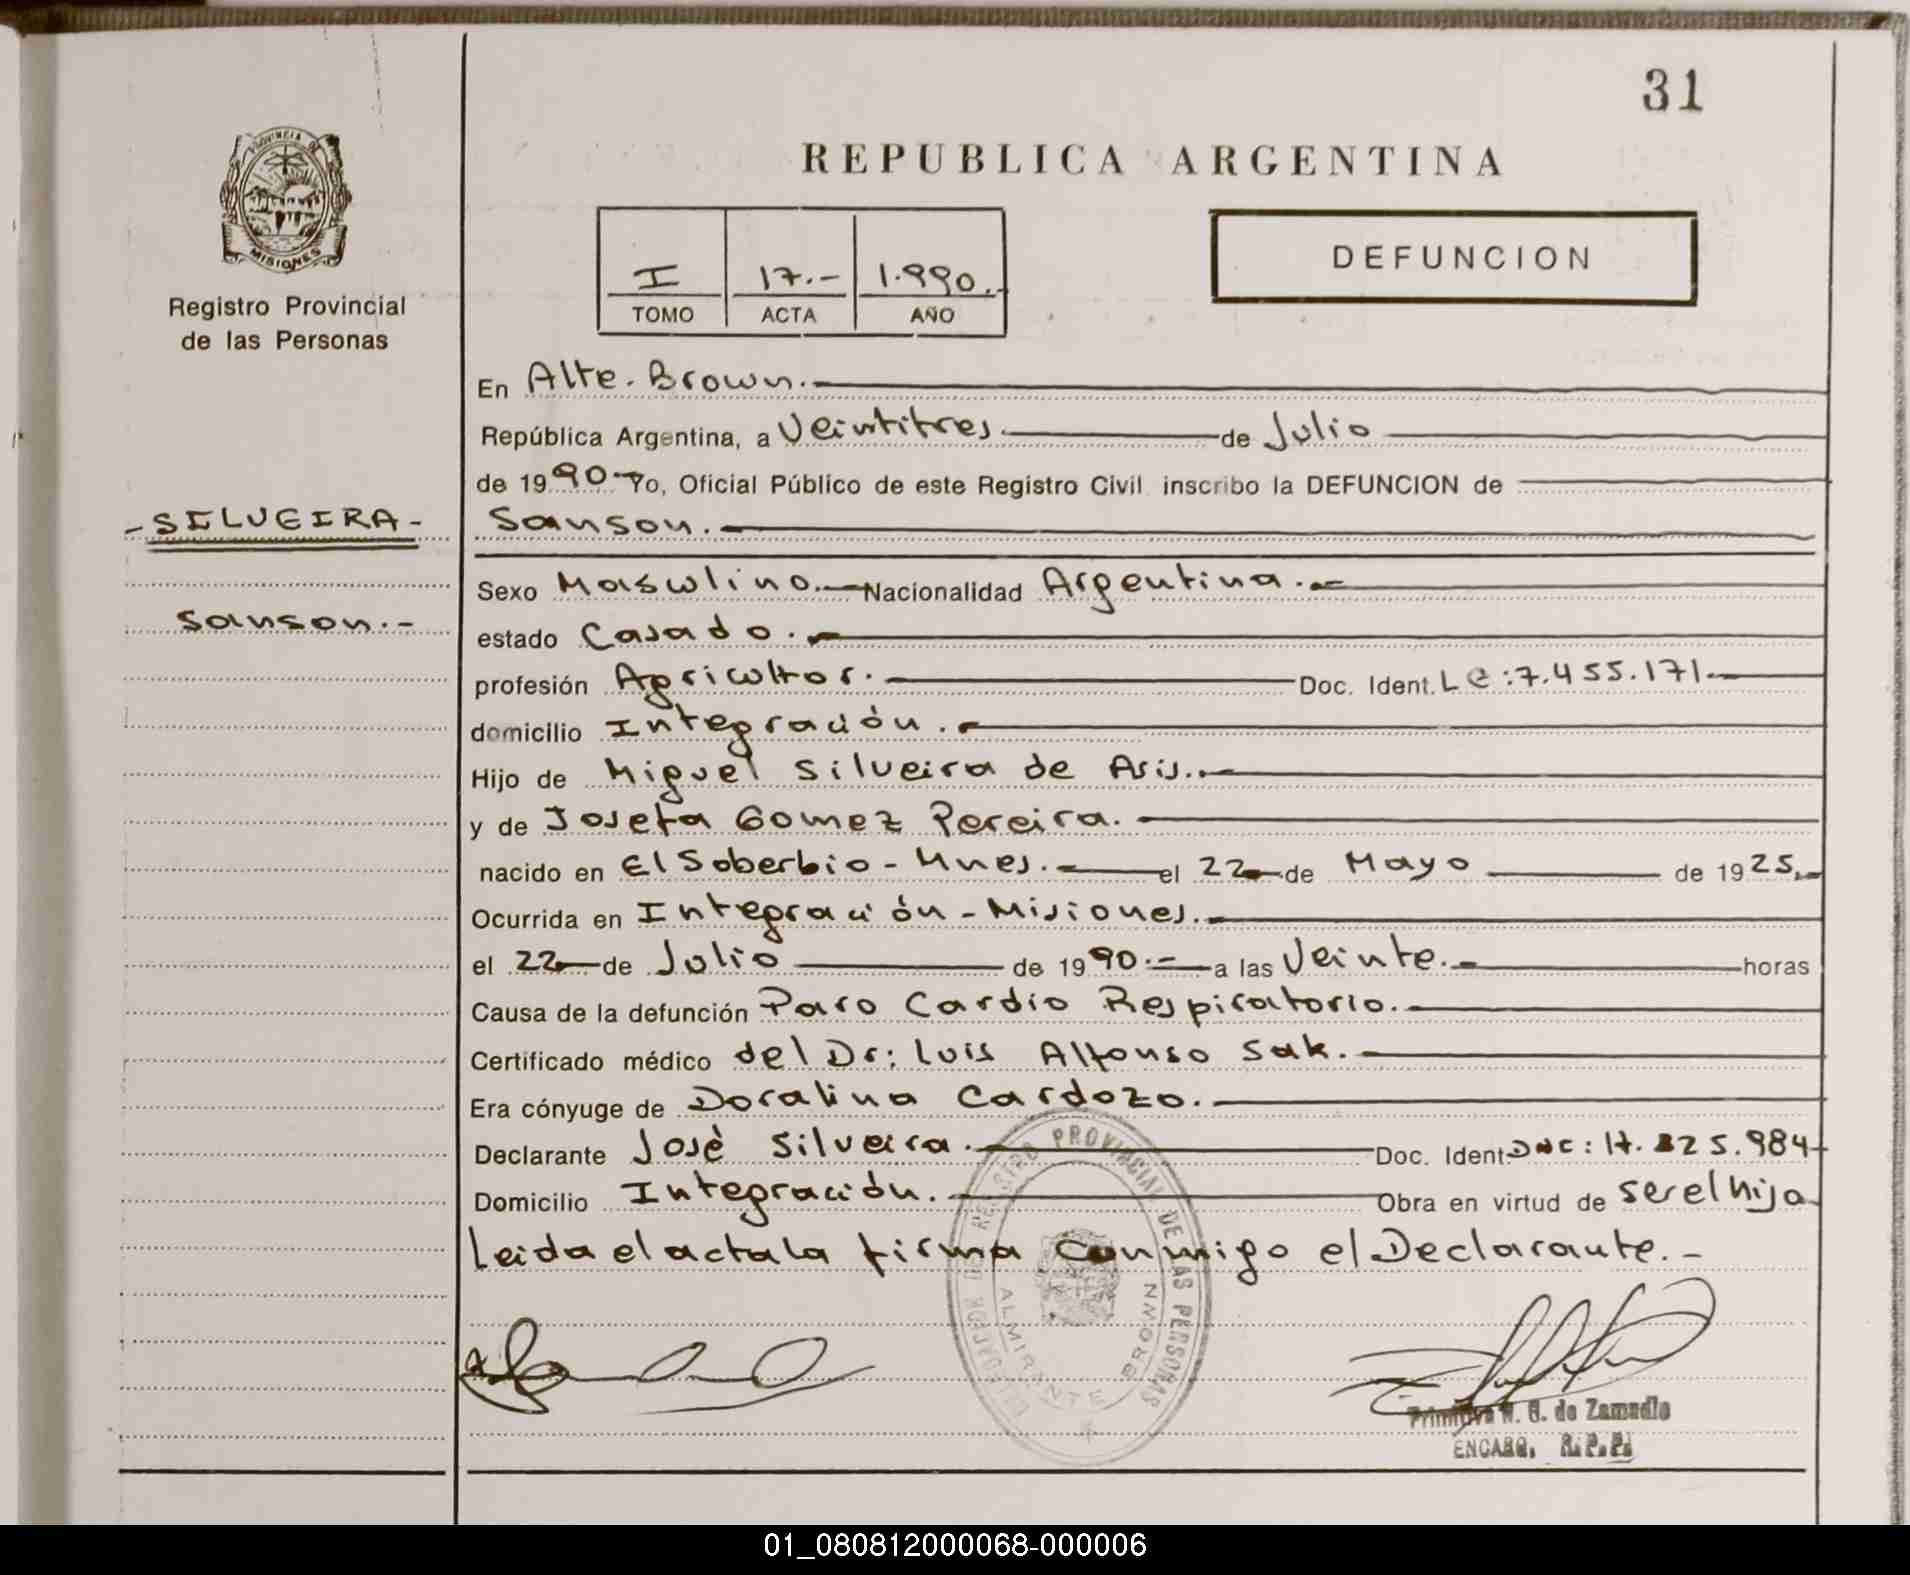 31
PROVINCIA DE
MISIONES
Registro Provincial
de las Personas
-SILVEIRA-
Sanson.-
REPUBLICA ARGENTINA
I 17.- 1.990.-
TOMO ACTA AÑO
DEFUNCION
En Alte. Brown.
República Argentina, a Veintitres de Julio
de 1990.- Yo, Oficial Público de este Registro Civil inscribo la DEFUNCION de
Sanson.
Sexo Masculino.- Nacionalidad Argentina.-
estado Casado.-
profesión Agricultor. Doc. Ident. LE:7.455.171.-
domicilio Integración.-
Hijo de Miguel Silveira de Asis.-
y de Josefa Gomez Pereira.
nacido en El Soberbio - Mnes. el 22 de Mayo de 1925.-
Ocurrida en Integración - Misiones.
el 22 de Julio de 1990.- a las Veinte.- horas
Causa de la defunción Paro Cardio Respiratorio.
Certificado médico del Dr: Luis Alfonso Sak.
Era cónyuge de Doralina Cardozo.
Declarante Josè Silveira. Doc. Ident.
Domicilio Integración. Obra en virtud de ser el hijo
Leida el acta la firma conmigo el Declarante.-
REGISTRO PROVINCIAL DE LAS PERSONAS
ALMIRANTE BROWN
de Zamudio
ENCARG. R.P.P.
01_080812000068-000006